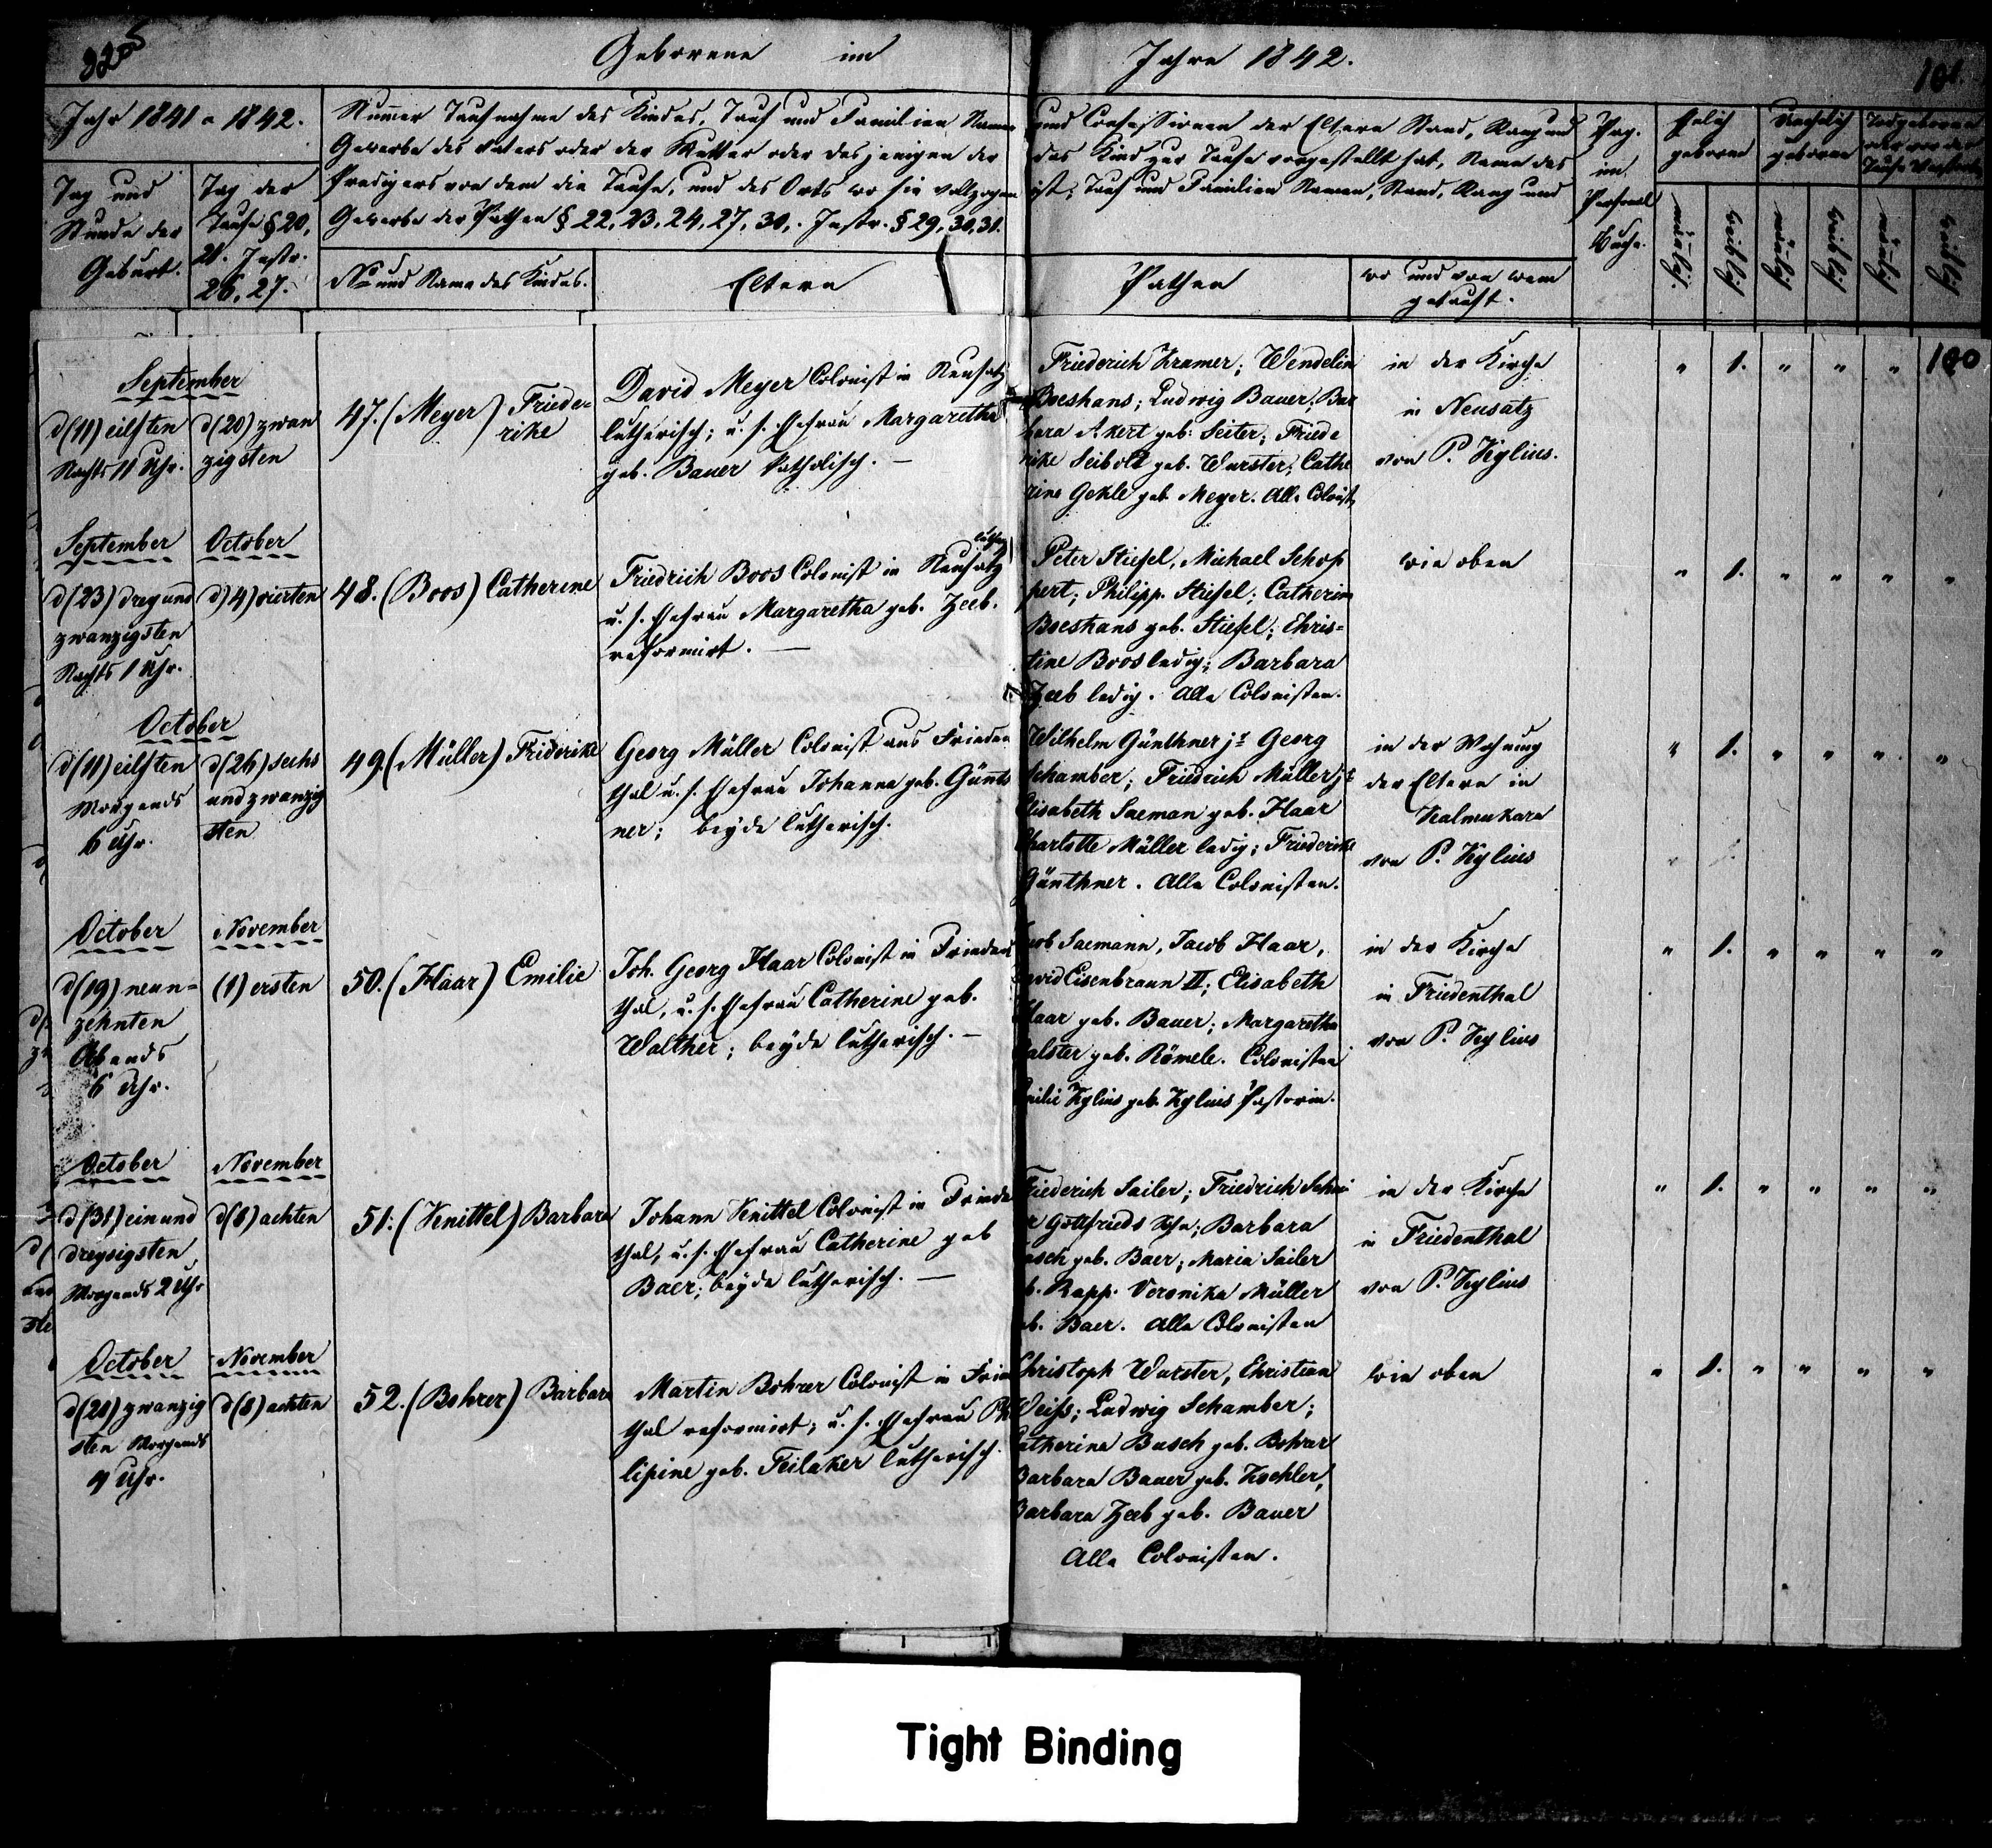 Geborene im Jahre 1842.
Jahr 1841 u 1842.
Tag und
Stunde der
Geburt.
Tag der
Taufe § 20,
21. Instr.
26, 27.
Numer Taufnahme des Kindes, Tauf und Familien Namen und Confessionen der Eltern Stand, Rang und
Gewerbe des Vaters oder der Mutter oder desjenigen der das Kind zur Taufe vorgestellt hat, Name des
Predigers von dem die Taufe, und des Orts wo sie vollzogen ist, Tauf und Familien Namen, Stand, Rang und
Gewerbe der Pathen § 22, 23, 24, 27, 30, . Instr. § 29, 30, 31.
No und Name des Kindes.
Eltern
Pathen
wo und von wem
getauft.
Pag.
im
Personal
Buche.
Ehelich
geboren
Unehelich
geboren
Todgeborene
oder vor der
Taufe Verstorb.
männlich.
weiblich
männlich
weiblich
männlich
weiblich
September
d (11) eilften
Nachts 11 Uhr.
d (20) zwan
zigsten
47. (Meyer) Friede=
rike
David Meyer Colonist in Neusatz
lutherisch; u. s. Ehefrau Margaretha
geb. Bauer katholisch. —
Friederich Kramer; Wendelin
Boeshans; Ludwig Bauer; Bar
bara Akert geb. Seiter; Friede
rike Seibold geb. Wurster; Cathe
rine Gekle geb. Meyer. Alle Colonist.
in der Kirche
in Neusatz
von P. Kylius.
" 1. " " " 100
September
d (23) drey und
zwanzigsten
Nachts 1 Uhr.
October
d (4) vierten
48. (Boos) Catherine
luther
Friedrich Boos Colonist in Neusatz
u. s. Ehefrau Margaretha geb. Zeeb.
reformirt. —
Peter Stiefel, Michael Schop
pert; Philipp Stiefel; Catherine
Boeshans geb. Stiefel; Chris=
tine Boos ledig; Barbara
Zeeb ledig. Alle Colonisten.
wie oben
" 1. " " " "
October
d (11) eilften
Morgends
6 Uhr.
d (26) sechs
und zwanzig
sten
49. (Müller) Friderike
Georg Müller Colonist aus Frieden
thal u. s. Ehefrau Johanna geb. Günth
ner; beyde lutherisch.
Wilhelm Günthner jr Georg
Schamber; Friedrich Müller jr
Elisabeth Saeman geb. Haar
Charlotte Müller ledig; Friederike
Günthner. Alle Colonisten.
in der Wohnung
der Eltern in
Kalmukara
von P. Kylius
" 1. " " " "
October
d (19) neun=
zehnten
Abends
6 Uhr.
November
(1) ersten
50. (Haar) Emilie
Joh. Georg Haar Colonist in Frieden
thal, u. s. Ehefrau Catherine geb.
Walther; beyde lutherisch. —
Saemann, Jacob Haar,
David Eisenbraun II; Elisabeth
Haar geb. Bauer; Margaretha
geb. Römele. Colonisten
Emilie Kylius geb. Kylius Pastorin.
in der Kirche
in Friedenthal
von P. Kylius
" 1. " " " "
October
d (31) ein und
dreysigsten
Morgends 2 Uhr
November
d (8) achten
51. (Knittel) Barbara
Johann Knittel Colonist in Frieden
thal, u. s. Ehefrau Catherine geb
Baer; beyde lutherisch. —
Friederich Sailer; Friedrich
Gottfrieds Sohn; Barbara
geb. Baer; Maria Sailer
geb. Rapp. Veronika Müller
geb. Baer. Alle Colonisten
in der Kirche
in Friedenthal
von P. Kylius
" 1. " " " "
October
d (20) zwanzig
sten Morgends
4 Uhr.
November
d (8) achten
52. (Bohrer) Barbara
Martin Bohrer Colonist in Frieden
thal reformirt; u. s. Ehefrau Phi
lipine geb. Feilaker lutherisch.
Christoph Wurster, Christian
Weiss; Ludwig Schamber;
Catherina Busch geb. Bohrer
Barbara Bauer geb. Koehler,
Barbara Zeeb geb. Bauer
Alle Colonisten.
wie oben
" 1. " " " "
Tight Binding